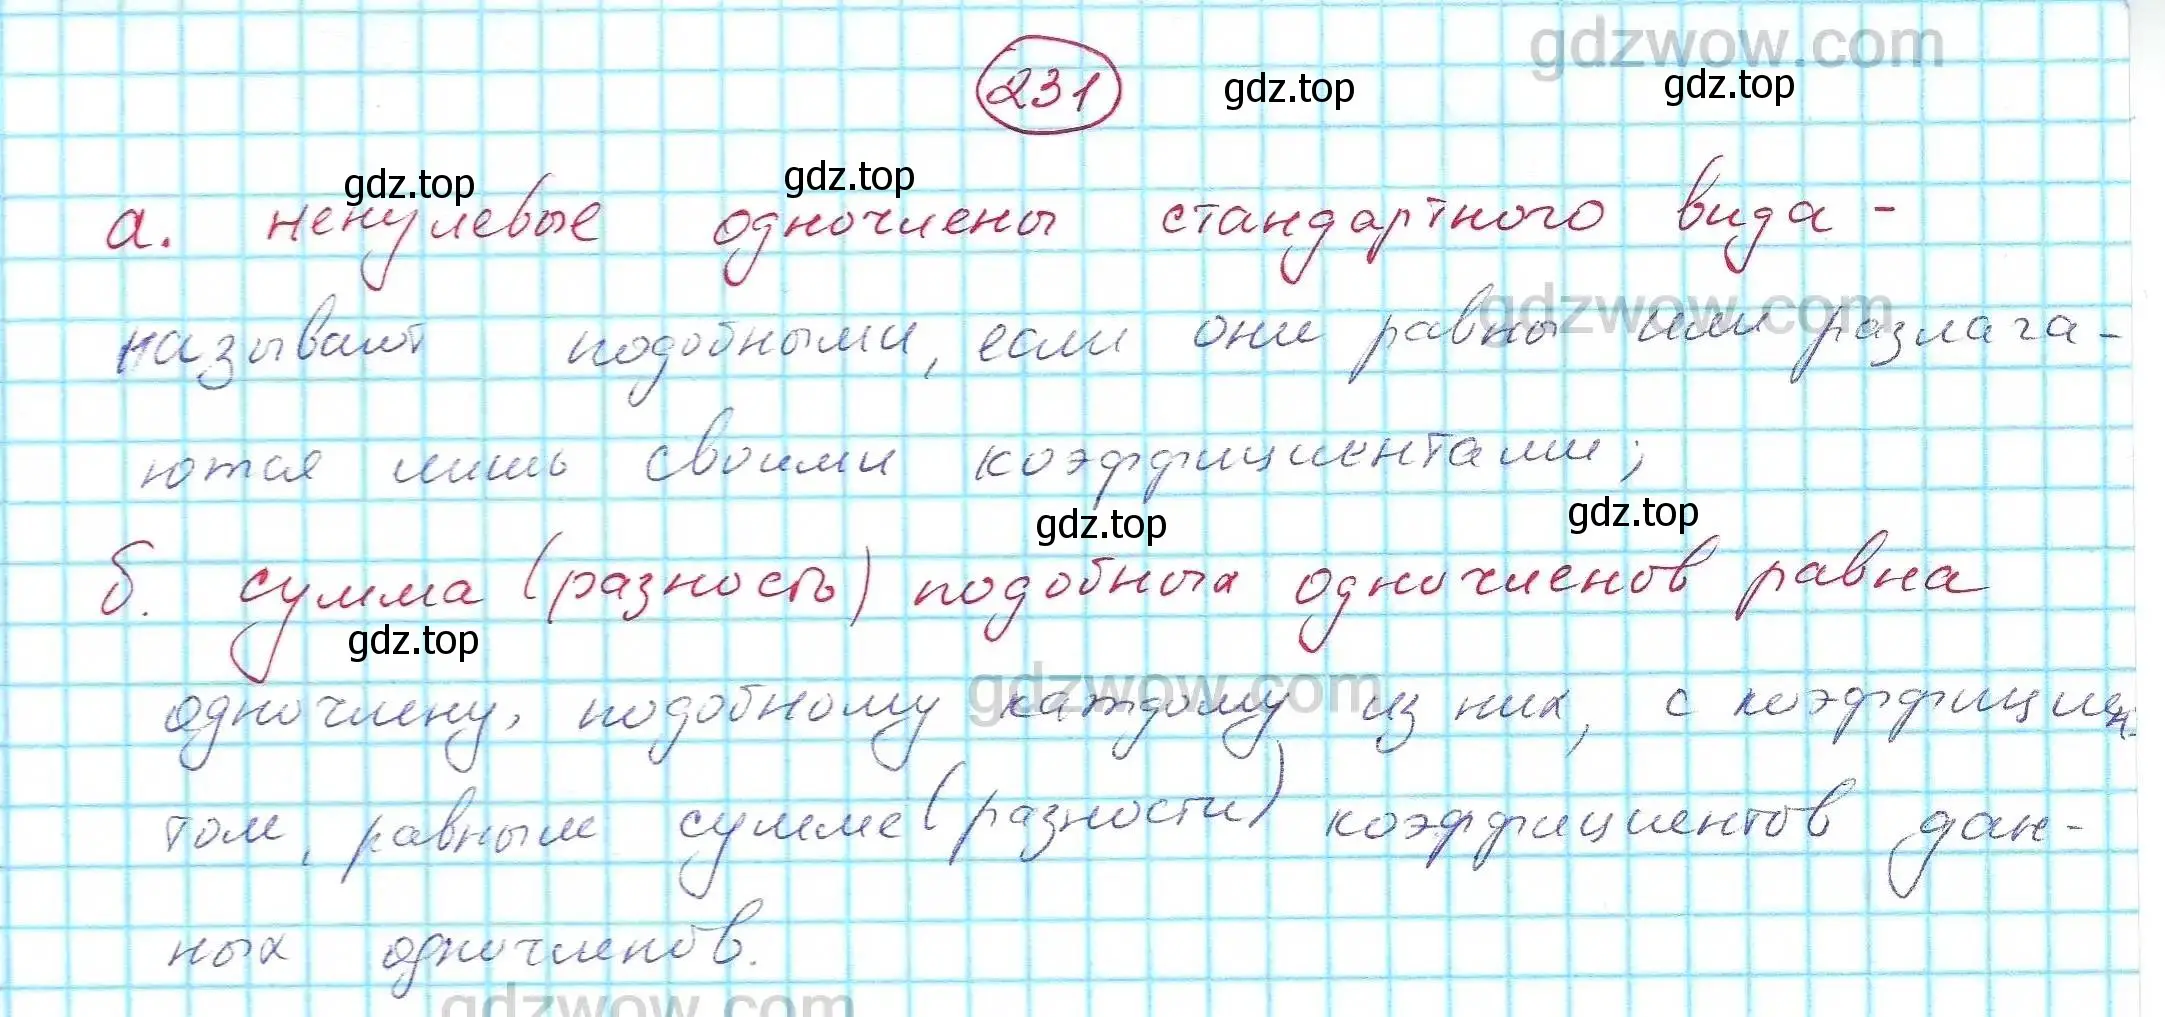 gdzwow.com
231
gdz.top
gdz.top
gdz.top
gdz.top
а. ненулевые одночлены стандартного вида -
называют подобными, если они равны или разлага-
gdzwow.com
ются лишь своими коэффициентами;
gdz.top
gdz.top
б. сумма (разность) подобных одночленов равна
gdz.top
одночлену, подобному каждому из них, с коэффициен-
gdzwow.com
том, равным сумме (разности) коэффициентов дан-
ных одночленов.
gdzwow.com